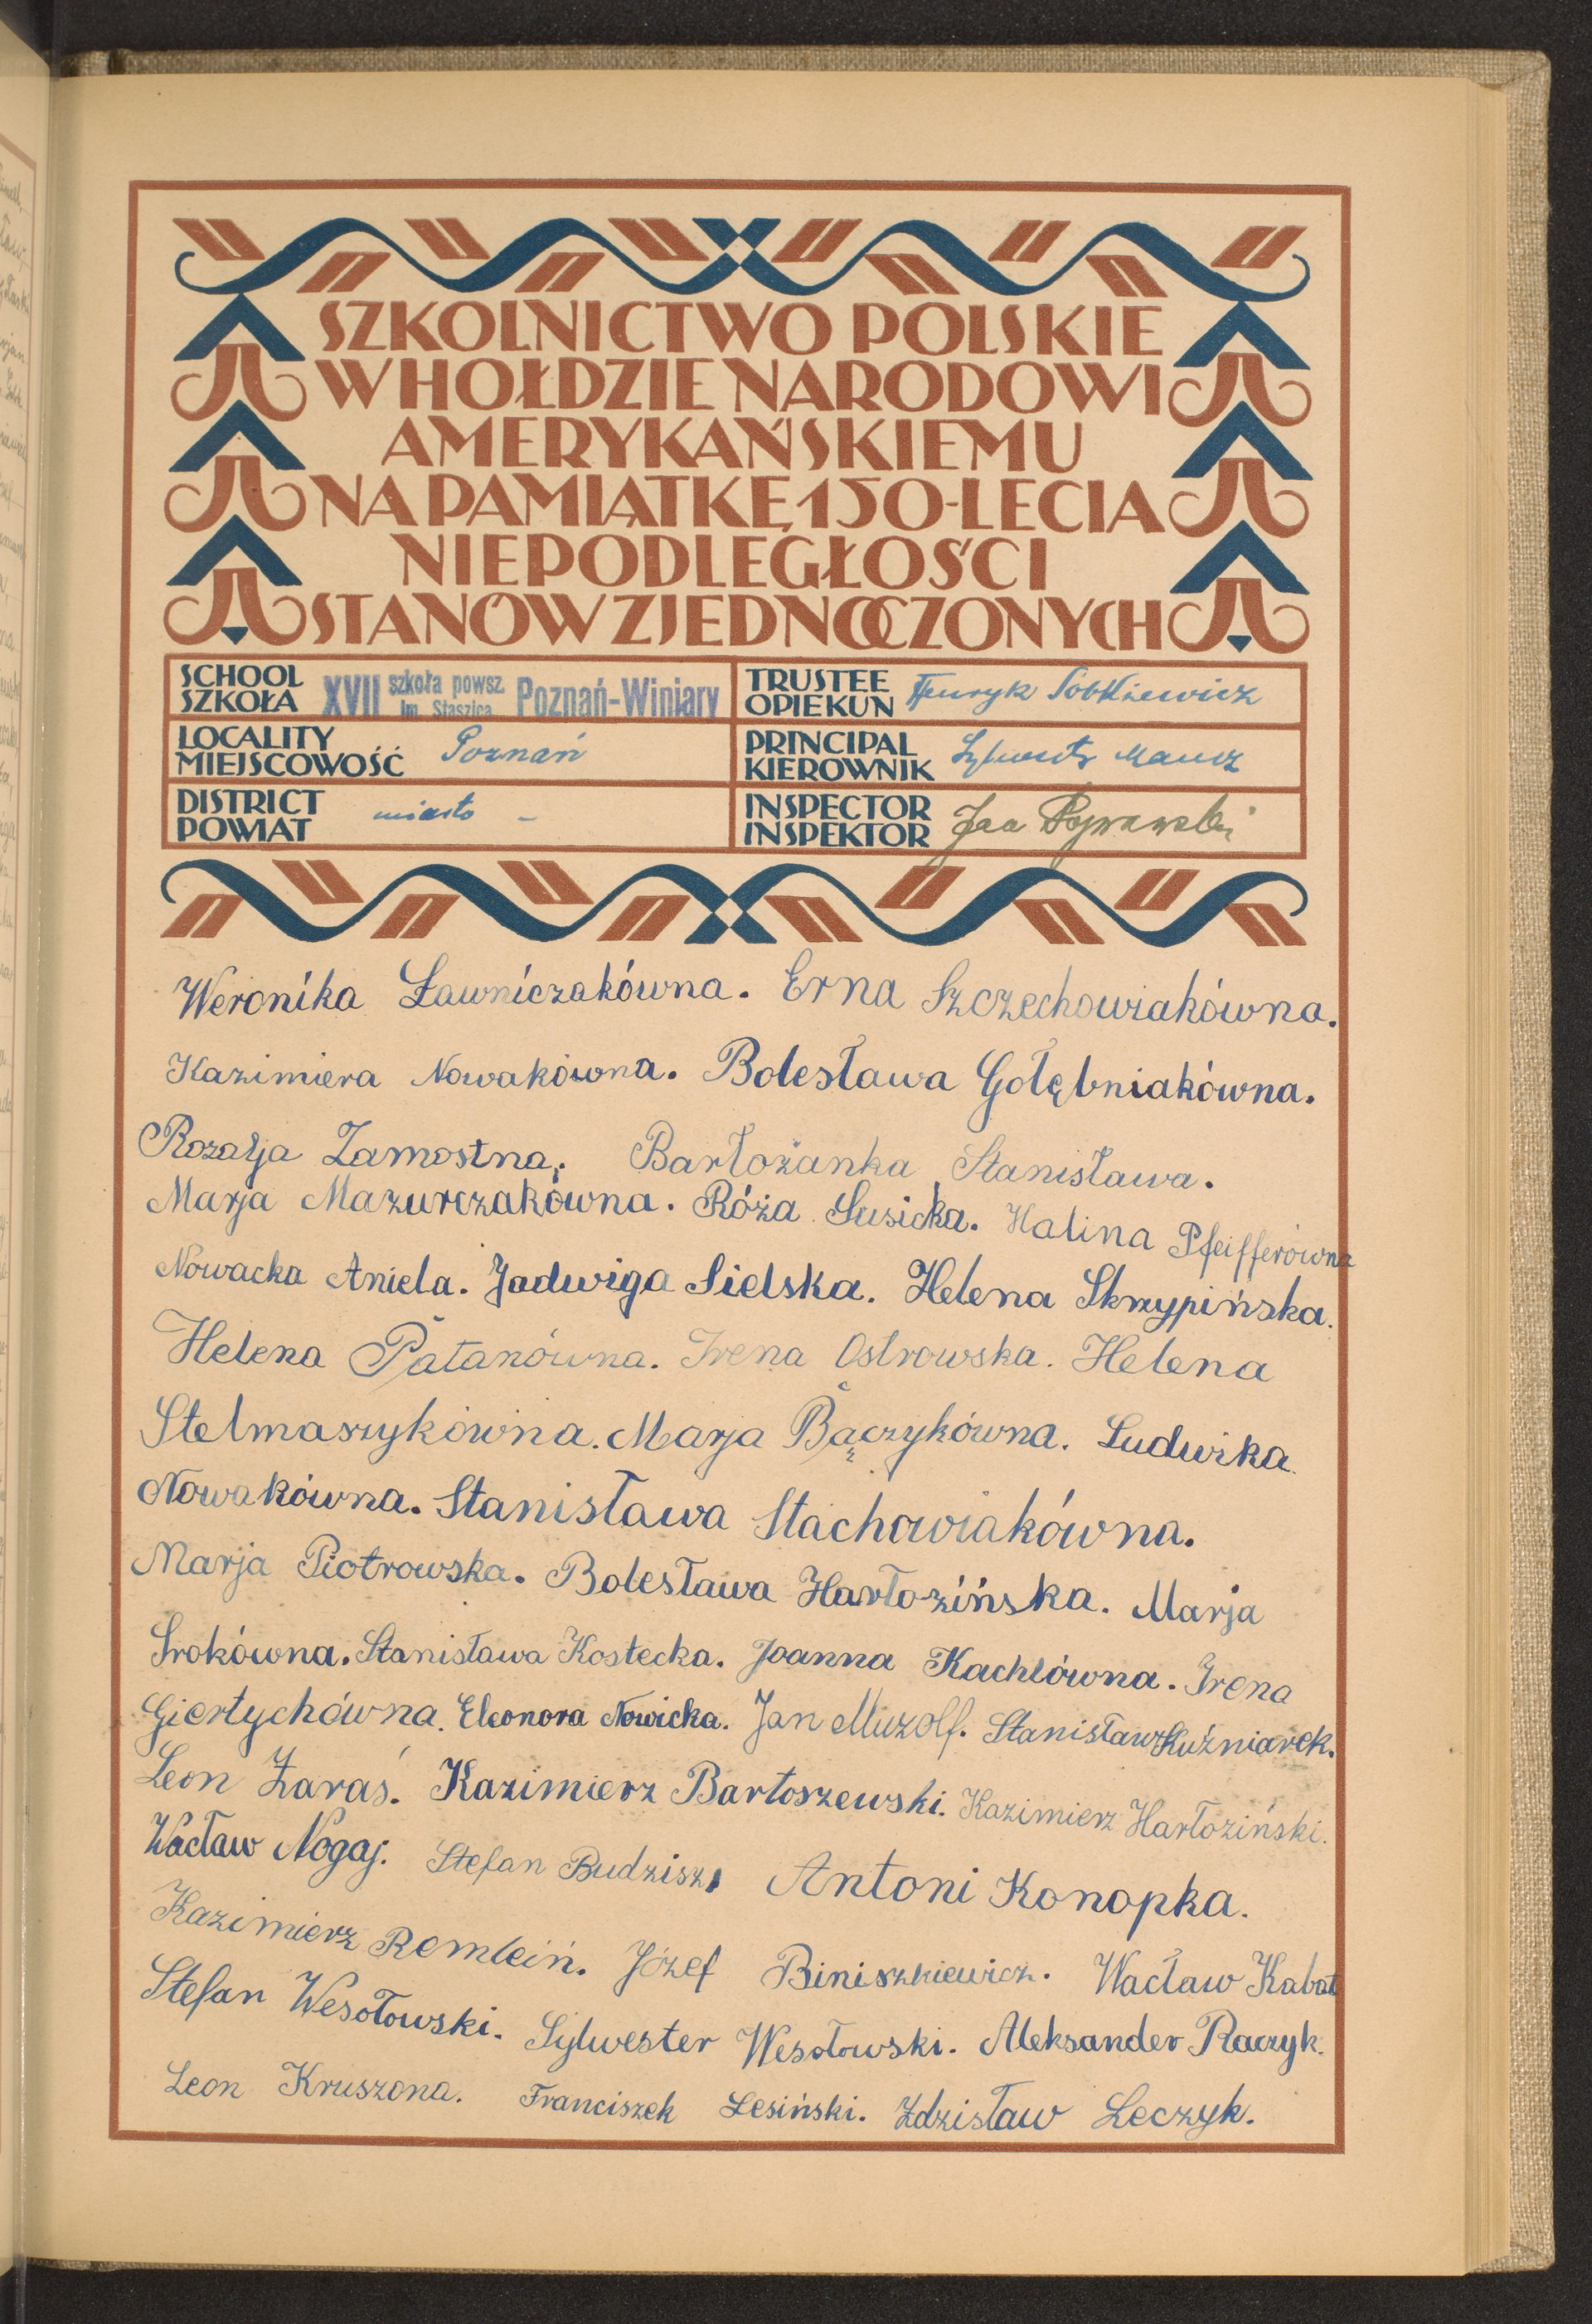 SZKOLNICTWO POLSKIE
W HOŁDZIE NARODOWI
AMERYKAŃSKIEMU
NA PAMIĄTKĘ 150-LECIA
NIEPODLEGŁOŚCI
STANÓW ZJEDNOCZONYCH
SCHOOL
SZKOŁA
XVII szkoła powsz. im. Staszica Poznań-Winiary
TRUSTEE
OPIEKUN
Henryk Sobkiewicz
LOCALITY
MIEJSCOWOŚĆ
Poznań
PRINCIPAL
KIEROWNIK
DISTRICT
POWIAT
miasto –
INSPECTOR
INSPEKTOR
Jan
Weronika Ławniczakówna. Erna Szczechowiakówna.
Kazimiera Nowakówna. Bolesława Gołębniakówna.
Rozalja Zamostna. Bartożanka Stanisława.
Marja Mazurczakówna. Róża Susicka. Halina Pfeifferówna
Nowacka Aniela. Jadwiga Sielska. Helena Skrzypińska.
Helena Pałanówna. Irena Ostrowska. Helena
Stelmaszykówna. Marja Bączykówna. Ludwika
Nowakówna. Stanisława Stachowiakówna.
Marja Piotrowska. Bolesława Hartozińska. Marja
Srokówna. Stanisława Kostecka. Joanna Kachlówna. Irena
Giertychówna. Eleonora Nowicka. Jan Muzolf. Stanisław Kuźniarek.
Leon Żaraś. Kazimierz Bartoszewski. Kazimierz Hartoziński.
Wacław Nogaj. Stefan Budzisz. Antoni Konopka.
Kazimierz Remlein. Józef Biniszkiewicz. Wacław Kabat
Stefan Wesołowski. Sylwester Wesołowski. Aleksander Raczyk.
Leon Kruszona. Franciszek Lesiński. Zdzisław Leczyk.